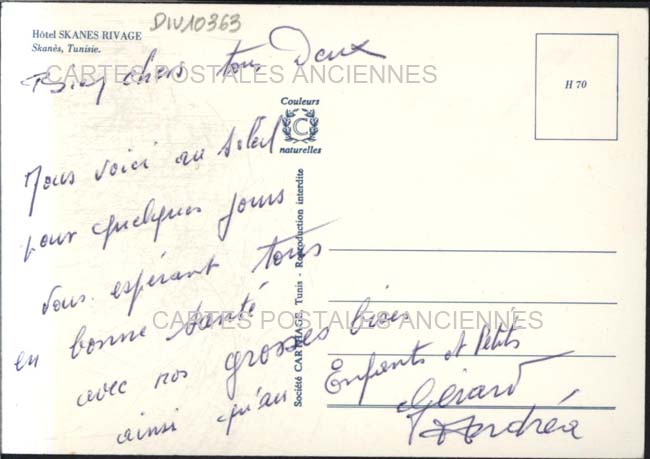 DIV10363
Hôtel SKANES RIVAGE
Skanès, Tunisie.
Bien chers tous Deux
CARTES POSTALES ANCIENNES
H 70
Couleurs
C
naturelles
Nous voici au soleil
pour quelques jours
Vous espérant tous
en bonne santé
CARTES POSTALES ANCIENNES
avec nos grosses bises
ainsi qu'au Enfants et Petits
Gérard
Andréa
Société CARTHAGE, Tunis - Reproduction interdite